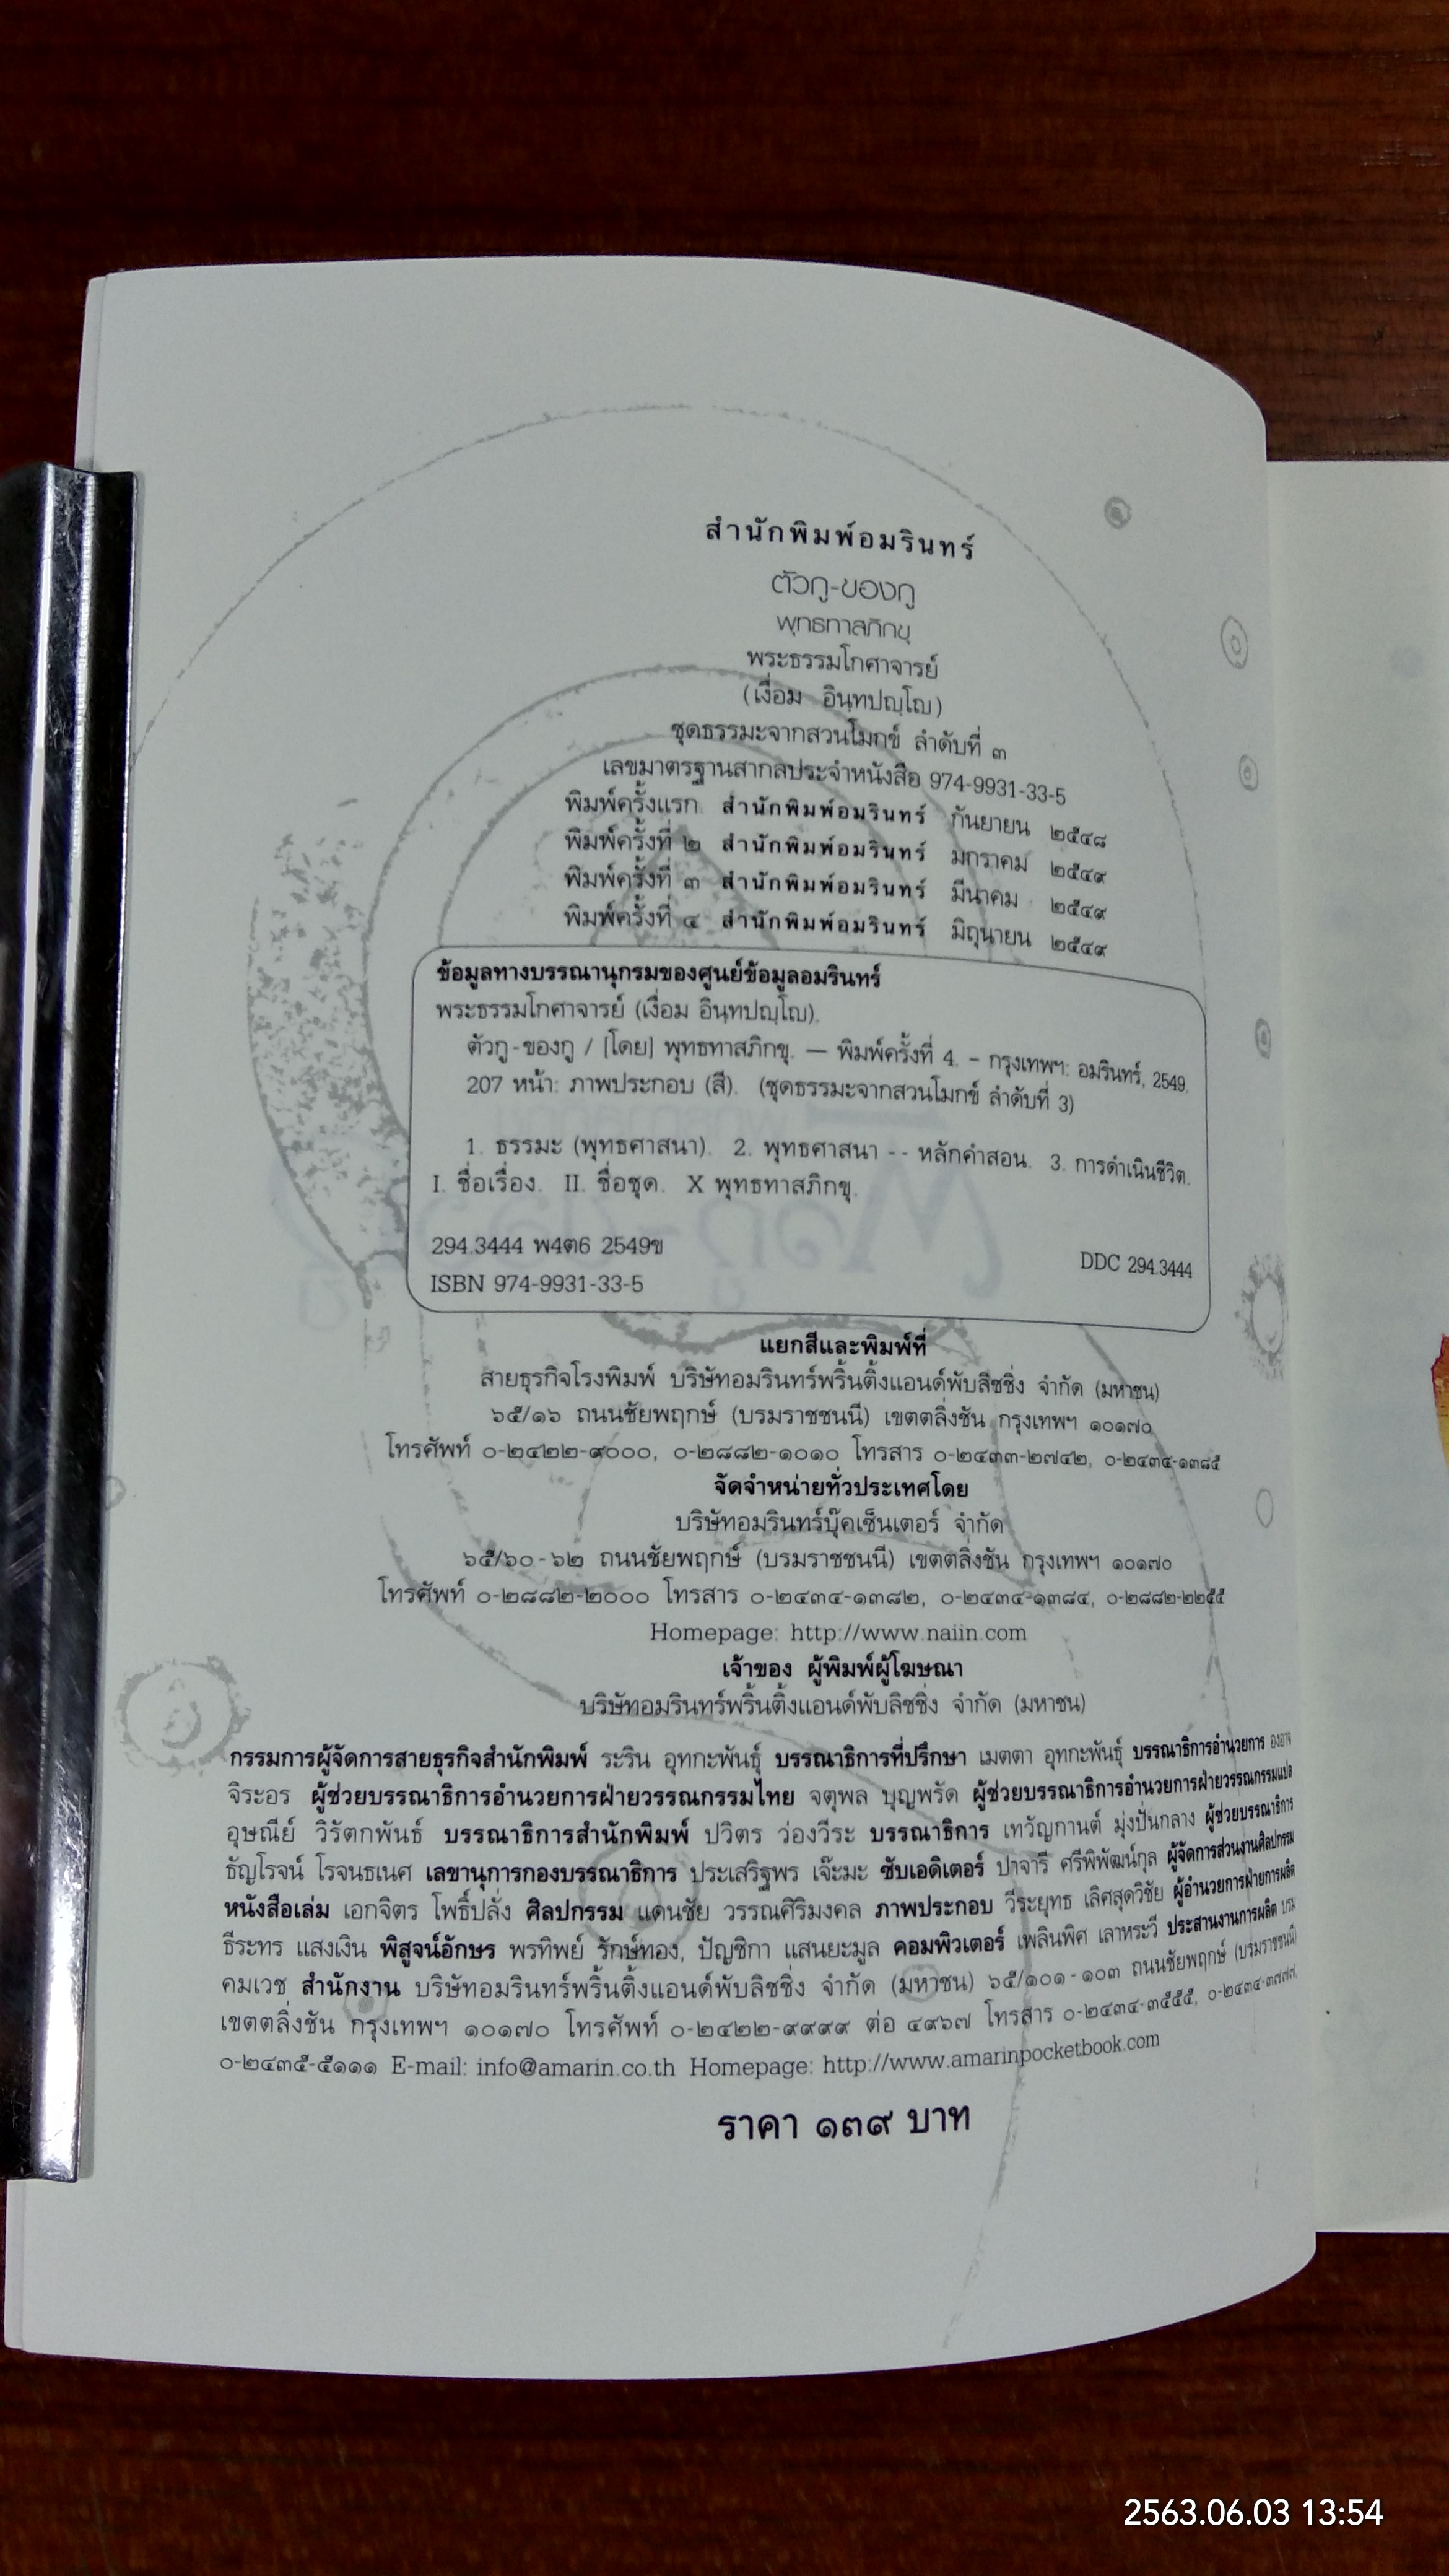 สำนักพิมพ์อมรินทร์
ตัวกู-ของกู
พุทธทาสภิกขุ
พระธรรมโกศาจารย์
(เงื่อม อินฺทปญฺโญ)
ชุดธรรมะจากสวนโมกข์ ลำดับที่ ๓
เลขมาตรฐานสากลประจำหนังสือ 974-9931-33-5
พิมพ์ครั้งแรก สำนักพิมพ์อมรินทร์ กันยายน ๒๕๔๘
พิมพ์ครั้งที่ ๒ สำนักพิมพ์อมรินทร์ มกราคม ๒๕๔๙
พิมพ์ครั้งที่ ๓ สำนักพิมพ์อมรินทร์ มีนาคม ๒๕๔๙
พิมพ์ครั้งที่ ๔ สำนักพิมพ์อมรินทร์ มิถุนายน ๒๕๔๙
ข้อมูลทางบรรณานุกรมของศูนย์ข้อมูลอมรินทร์
พระธรรมโกศาจารย์ (เงื่อม อินฺทปญฺโญ).
ตัวกู-ของกู / [โดย] พุทธทาสภิกขุ. — พิมพ์ครั้งที่ 4. – กรุงเทพฯ: อมรินทร์, 2549.
207 หน้า: ภาพประกอบ (สี). (ชุดธรรมะจากสวนโมกข์ ลำดับที่ 3)
1. ธรรมะ (พุทธศาสนา). 2. พุทธศาสนา -- หลักคำสอน. 3. การดำเนินชีวิต.
I. ชื่อเรื่อง. II. ชื่อชุด. X พุทธทาสภิกขุ.
294.3444 พ4ต6 2549ข
DDC 294.3444
ISBN 974-9931-33-5
แยกสีและพิมพ์ที่
สายธุรกิจโรงพิมพ์ บริษัทอมรินทร์พริ้นติ้งแอนด์พับลิชชิ่ง จำกัด (มหาชน)
๖๕/๑๖ ถนนชัยพฤกษ์ (บรมราชชนนี) เขตตลิ่งชัน กรุงเทพฯ ๑๐๑๗๐
โทรศัพท์ ๐-๒๔๒๒-๙๐๐๐, ๐-๒๘๘๒-๑๐๑๐ โทรสาร ๐-๒๔๓๓-๒๗๔๒, ๐-๒๔๓๔-๑๓๘๕
จัดจำหน่ายทั่วประเทศโดย
บริษัทอมรินทร์บุ๊คเซ็นเตอร์ จำกัด
๖๕/๖๐-๖๒ ถนนชัยพฤกษ์ (บรมราชชนนี) เขตตลิ่งชัน กรุงเทพฯ ๑๐๑๗๐
โทรศัพท์ ๐-๒๘๘๒-๒๐๐๐ โทรสาร ๐-๒๔๓๔-๑๓๘๒, ๐-๒๔๓๔-๑๓๘๔, ๐-๒๘๘๒-๒๒๕๕
Homepage: http://www.naiin.com
เจ้าของ ผู้พิมพ์ผู้โฆษณา
บริษัทอมรินทร์พริ้นติ้งแอนด์พับลิชชิ่ง จำกัด (มหาชน)
กรรมการผู้จัดการสายธุรกิจสำนักพิมพ์ ระริน อุทกะพันธุ์ บรรณาธิการที่ปรึกษา เมตตา อุทกะพันธุ์ บรรณาธิการอำนวยการ องอาจ
จิระอร ผู้ช่วยบรรณาธิการอำนวยการฝ่ายวรรณกรรมไทย จตุพล บุญพรัด ผู้ช่วยบรรณาธิการอำนวยการฝ่ายวรรณกรรมแปล
อุษณีย์ วิรัตกพันธ์ บรรณาธิการสำนักพิมพ์ ปวิตร ว่องวีระ บรรณาธิการ เทวัญกานต์ มุ่งปั่นกลาง ผู้ช่วยบรรณาธิการ
ธัญโรจน์ โรจนธเนศ เลขานุการกองบรรณาธิการ ประเสริฐพร เจ๊ะมะ ซับเอดิเตอร์ ปาจารี ศรีพิพัฒน์กุล ผู้จัดการส่วนงานศิลปกรรม
หนังสือเล่ม เอกจิตร โพธิ์ปลั่ง ศิลปกรรม แดนชัย วรรณศิริมงคล ภาพประกอบ วีระยุทธ เลิศสุดวิชัย ผู้อำนวยการฝ่ายการผลิต
ธีระทร แสงเงิน พิสูจน์อักษร พรทิพย์ รักษ์ทอง, ปัญชิกา แสนยะมูล คอมพิวเตอร์ เพลินพิศ เลาหระวี ประสานงานการผลิต
คมเวช สำนักงาน บริษัทอมรินทร์พริ้นติ้งแอนด์พับลิชชิ่ง จำกัด (มหาชน) ๖๕/๑๐๑-๑๐๓ ถนนชัยพฤกษ์ (บรมราชชนนี)
เขตตลิ่งชัน กรุงเทพฯ ๑๐๑๗๐ โทรศัพท์ ๐-๒๔๒๒-๙๙๙๙ ต่อ ๔๙๖๗ โทรสาร ๐-๒๔๓๔-๓๕๕๕, ๐-๒๔๓๔-๓๗๗๗,
๐-๒๔๓๕-๕๑๑๑ E-mail: info@amarin.co.th Homepage: http://www.amarinpocketbook.com
ราคา ๑๓๙ บาท
2563.06.03 13:54